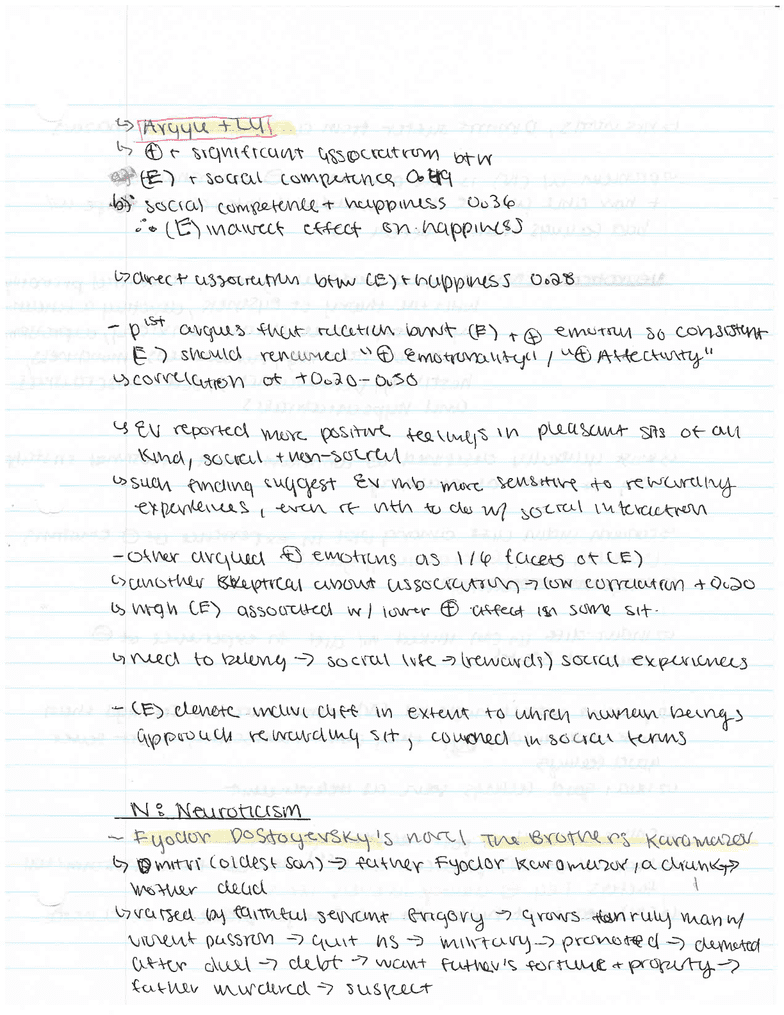 ↳ Argyle + LU
↳ ⊕ + significant association btw
a) (E) + social competence 0.49
b) social competence + happiness 0.36
∴ (E) indirect effect on happiness
↳ direct association btw (E) + happiness 0.28
- pist argues that relation bwnt (E) + ⊕ emotion so consistent
E) should renamed "⊕ Emotionality" / "⊕ Affectivity"
↳ correlation of +0.20-0.50
↳ EV reported more positive feelings in pleasant sits of all
kind, social + non-social
↳ such finding suggest EV mb more sensitive to rewarding
experiences, even if nth to do w/ social interaction
- other argued ⊕ emotions as 1/6 facets of (E)
↳ another skeptical about association → low correlation +0.20
↳ high (E) associated w/ lower ⊕ affect in some sit.
↳ need to belong → social life → (rewards) social experiences
- (E) denote indivi diff in extent to which human beings
approach rewarding sit, couched in social terms
N: Neuroticism
- Fyodor Dostoyevsky's novel The Brothers Karamazov
↳ Dmitri (oldest son) → father Fyodor Karamazov, a drunk →
mother dead
↳ raised by faithful servant Grigory → grows unruly man w/
violent passion → quit hs → military → promoted → demoted
after duel → debt → want father's fortune + property →
father murdered → suspect